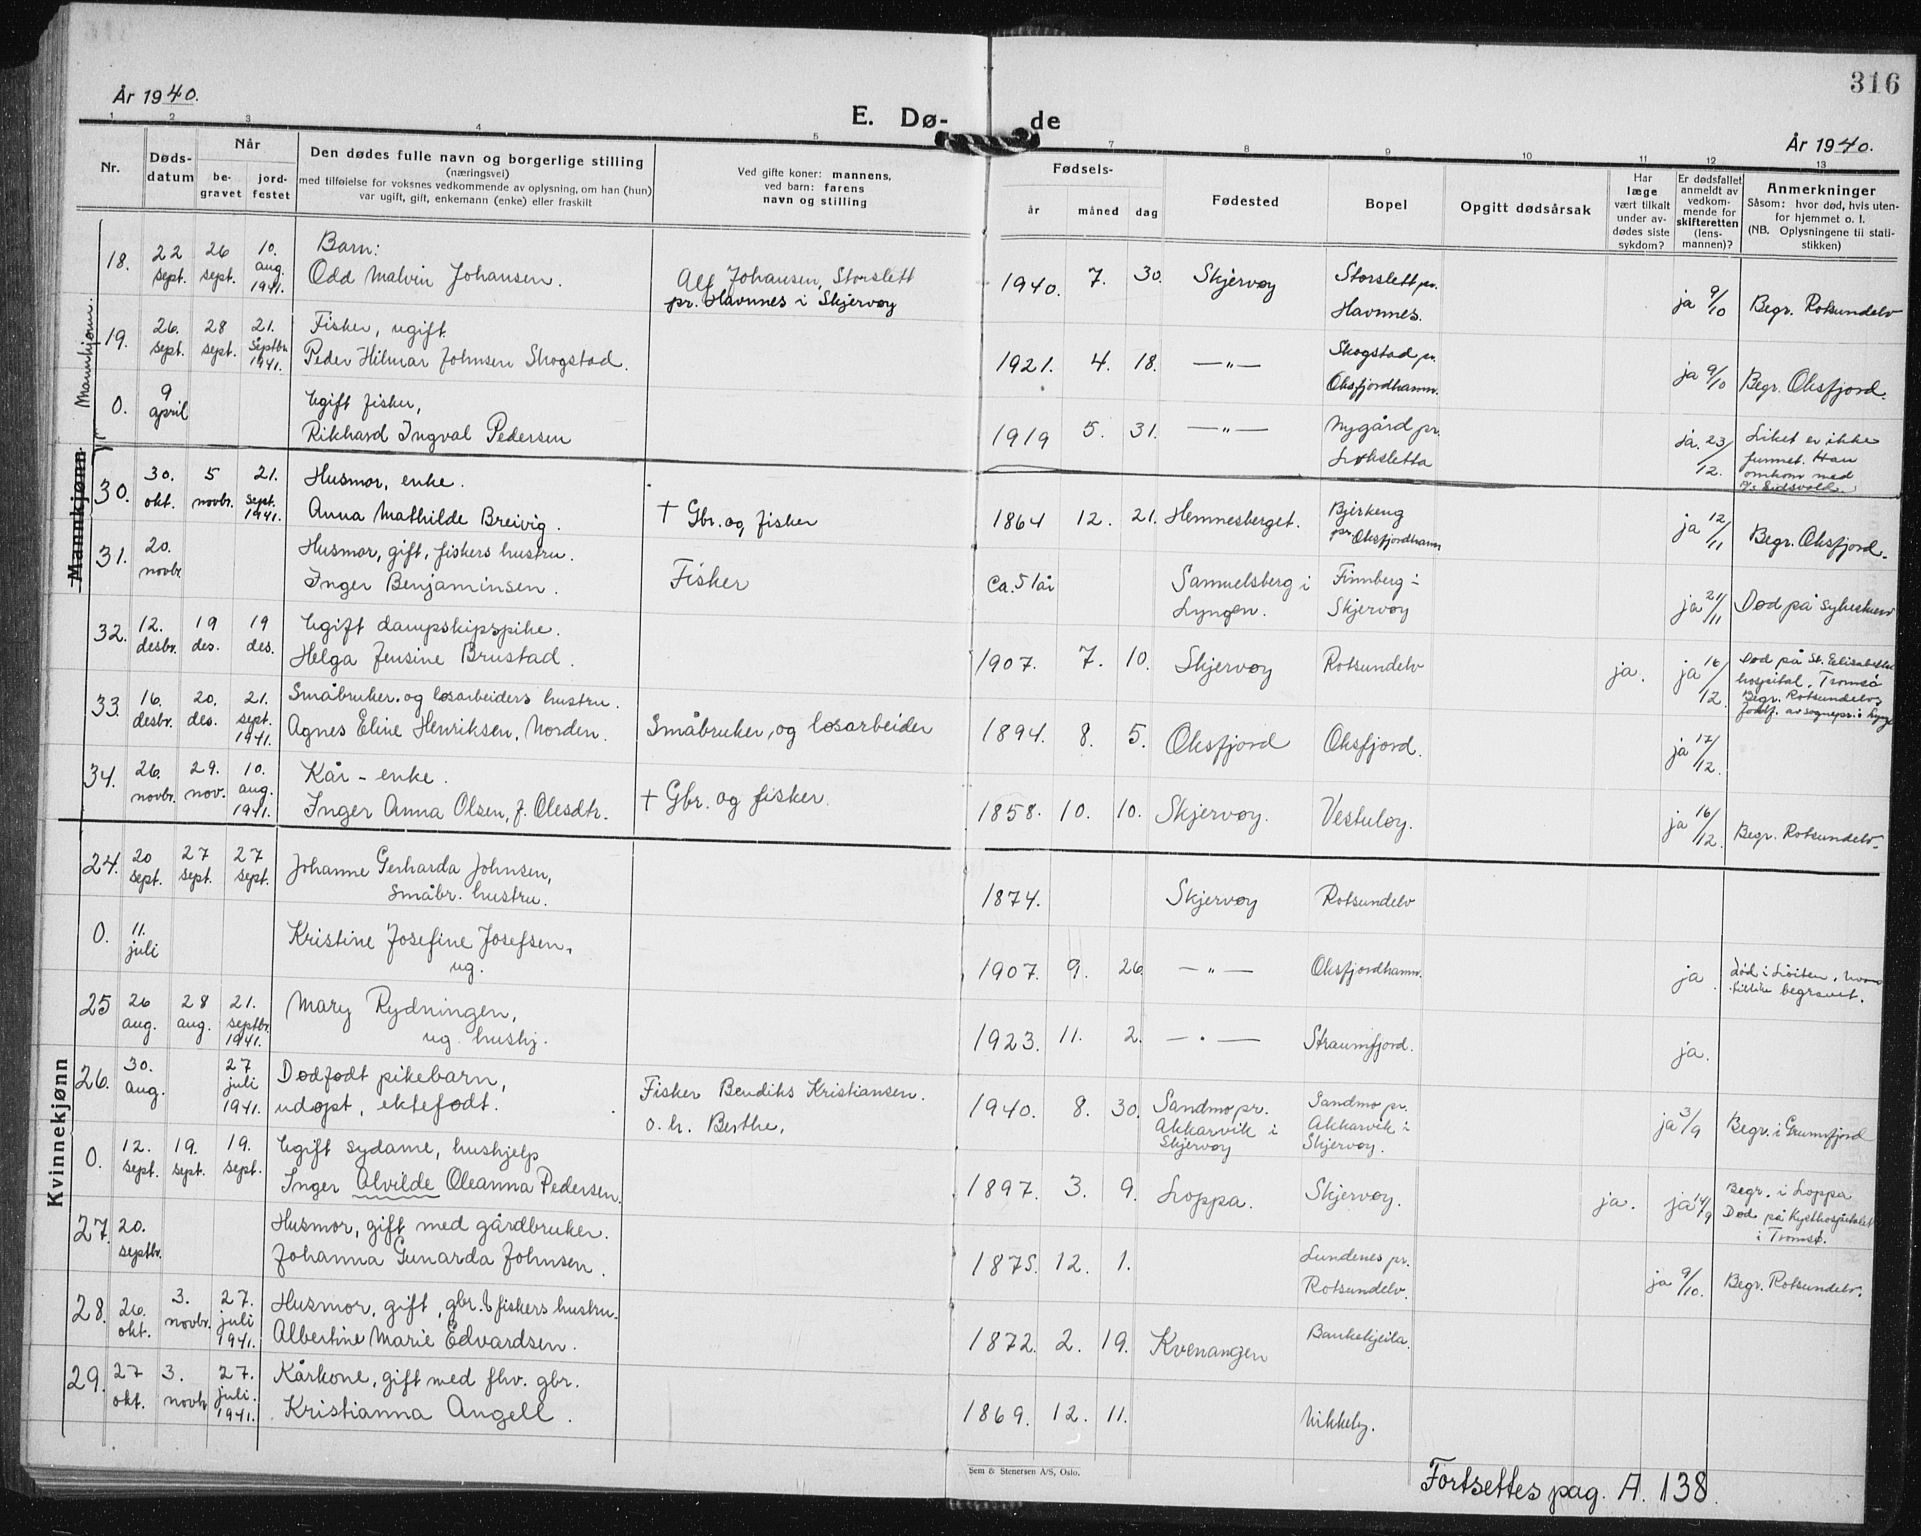 316
År 1940.
E. Dø-
de
År 1940.
1 2 3 4 5 7 8 9 10 11 12 13
Nr.
Døds-
datum
Når
be-
gravet
jord-
festet
Den dødes fulle navn og borgerlige stilling
(næringsvei)
med tilføielse for voksnes vedkommende av oplysning, om han (hun)
var ugift, gift, enkemann (enke) eller fraskilt
Ved gifte koner: mannens,
ved barn: farens
navn og stilling
Fødsels-
år måned dag
Fødested
Bopel
Opgitt dødsårsak
Har
læge
vært tilkalt
under av-
dødes siste
sykdom?
Er dødsfallet
anmeldt av
vedkom-
mende for
skifteretten
(lens-
mannen)?
Anmerkninger
Såsom: hvor død, hvis uten-
for hjemmet o. l.
(NB. Oplysningene til stati-
stikken)
Mannkjønn.
18. 22 sept. 26 sept. 10. aug. 1941.
Barn:
Odd Malvin Johansen.
Alf Johansen, Storslett
pr. Havnnes i Skjervøy
1940. 7. 30. Skjervøy
Storslett pr.
Havnnes.
ja 9/10
Begr. Rotsundelv
19. 26. sept. 28 sept. 21. septbr. 1941.
Fisker, ugift.
Peder Hilmar Johnsen Skogstad.
1921. 4. 18. —„—
Skogstad pr.
Oksfjordhamn.
ja 9/10
Begr. Oksfjord.
0. 9 april
Ugift fisker,
Rikhard Ingval Pedersen
1919 5. 31. —„—
Nygård pr.
Løksletta
ja. 23/12.
Liket er ikke
funnet. Han
omkom med
Eidsvold.
Mannkjønn
30. 30. okt. 5 novbr. 21. sept. 1941.
Husmor, enke.
Anna Mathilde Breivig.
† Gbr. og fisker
1864 12. 21. Hemnesberget.
Bjerkeng
pr. Oksfjordhamn
ja 12/11
Begr. Oksfjord.
31. 20. novbr.
Husmor, gift, fiskers hustru.
Inger Benjaminsen.
Fisker
ca. 51 år
Samuelsberg i
Lyngen.
Finnberg i
Skjervøy
ja 21/11
Død på sykestuen
32. 12. desbr. 19 des. 19 des.
Ugift dampskipspike.
Helga Jensine Brustad.
1907. 7. 10. Skjervøy Rotsundelv
ja. ja 16/12.
Død på St. Elisabeths
hospital, Tromsø
Begr. Rotsundelv,
jordf. av sognepr. i
33. 16. desbr. 20. des. 21. sept. 1941.
Småbruker og løsarbeiders hustru.
Agnes Eline Henriksen, Norden.
Småbruker, og løsarbeider
1894. 8. 5. Oksfjord Oksfjord.
ja 17/12.
34. 26. novbr. 29. nov. 10. aug. 1941.
Kår-enke.
Inger Anna Olsen, f. Olesdtr.
† Gbr. og fisker.
1858. 10. 10. Skjervøy. Vestuløy.
ja 16/12.
Begr. Rotsundelv.
Kvinnekjønn
24. 20 sept. 27 sept. 27 sept.
Johanne Gerharda Johnsen,
småbr. hustru.
1874. Skjervøy Rotsundelv
0. 11. juli
Kristine Josefine Josefsen,
ug.
1907. 9. 26. —„— Oksfjordhamn.
ja
død i Løiten,
begravet.
25 26 aug. 28 aug. 21. septbr. 1941.
Mary Rydningen,
ug. hushj.
1923. 11. 2. —„— Straumfjord.
ja.
26. 30. aug. 27 juli 1941.
Dødfødt pikebarn,
udøpt, ektefødt.
Fisker Bendiks Kristiansen.
o. h. Berthe.
1940. 8. 30.
Sandmo pr.
Akkarvik i
Skjervøy
Sandmo pr.
Akkarvik i
Skjervøy.
ja 3/9
Begr. i Grunnfjord
0. 12. sept. 19. sept. 19. sept.
Ugift sydame, hushjelp
Inger Alvilde Oleanna Pedersen.
1897. 3. 9. Loppa. Skjervøy.
ja. ja 14/9
Begr. i Loppa
Død på Kysthospitalet
i Tromsø.
27. 20. septbr.
Husmor, gift med gårdbruker.
Johanna Gunarda Johnsen.
1875. 12. 1.
Lundenes pr.
Rotsundelv.
ja 9/10.
Begr. Rotsundelv.
28. 26. okt. 3. novbr. 27. juli 1941.
Husmor, gift, gbr. & fiskers hustru.
Albertine Marie Edvardsen.
1872. 2. 19. Kvenangen
Bankekjeila.
29. 27 okt. 3. novbr 27. juli. 1941.
Kårkone, gift med fhv. gbr.
Kristianna Angell.
1869. 12. 11. Nikkeby.
Sem & Stenersen A/S, Oslo.
Fortsettes pag. A. 138.